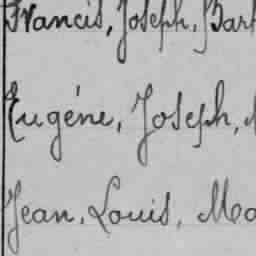 Francis, Joseph, Bar
Eugéne, Joseph,
Jean, Louis, Ma